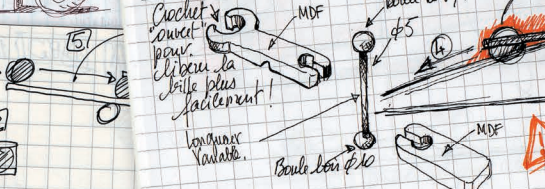 5
Crochet
"ouvert"
pour
libérer la
bille plus
facilement !
MDF
boule
φ5
4
Longueur
Variable.
Boule bois φ10
MDF